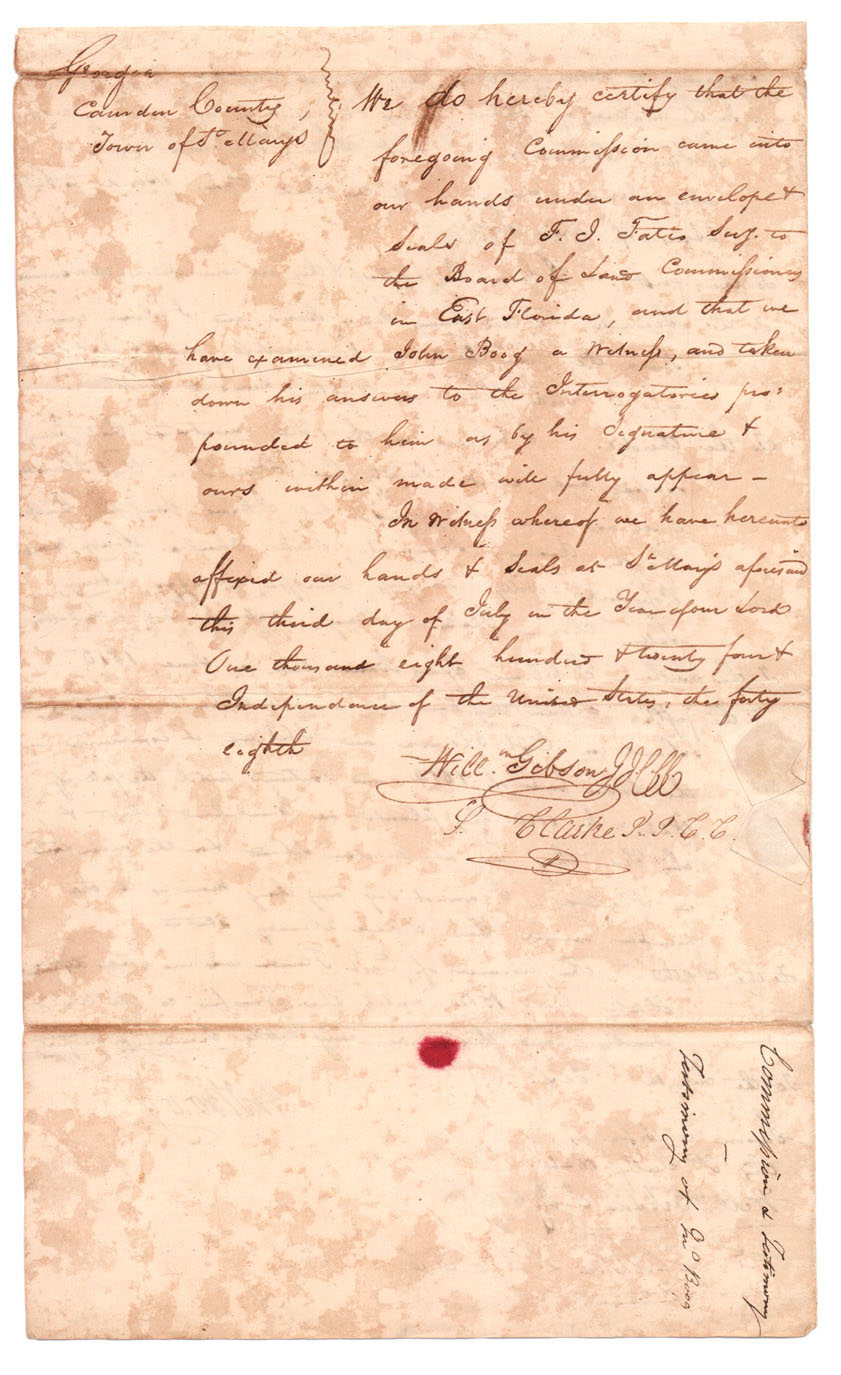 Georgia
Camden County,
Town of St Marys
We do hereby certify that the
foregoing Commission came into
our hands under an envelope &
Seals of F. J. Fatio Secy. to
the Board of Land Commissioners
in East Florida, and that we
have examined John Boog a Witness, and taken
down his answers to the Interrogatories pro=
pounded to him as by his Signature &
ours within made will fully appear –
In Witness whereof we have hereunto
affixed our hands & Seals at St Marys aforesaid
this third day of July in the Year of our Lord
One thousand eight hundred & twenty four &
Independence of the United States, the forty
eighth
Willm Gibson
Clarke J. J. C. C.
Commission & Testimony
Testimony of Jno Boog